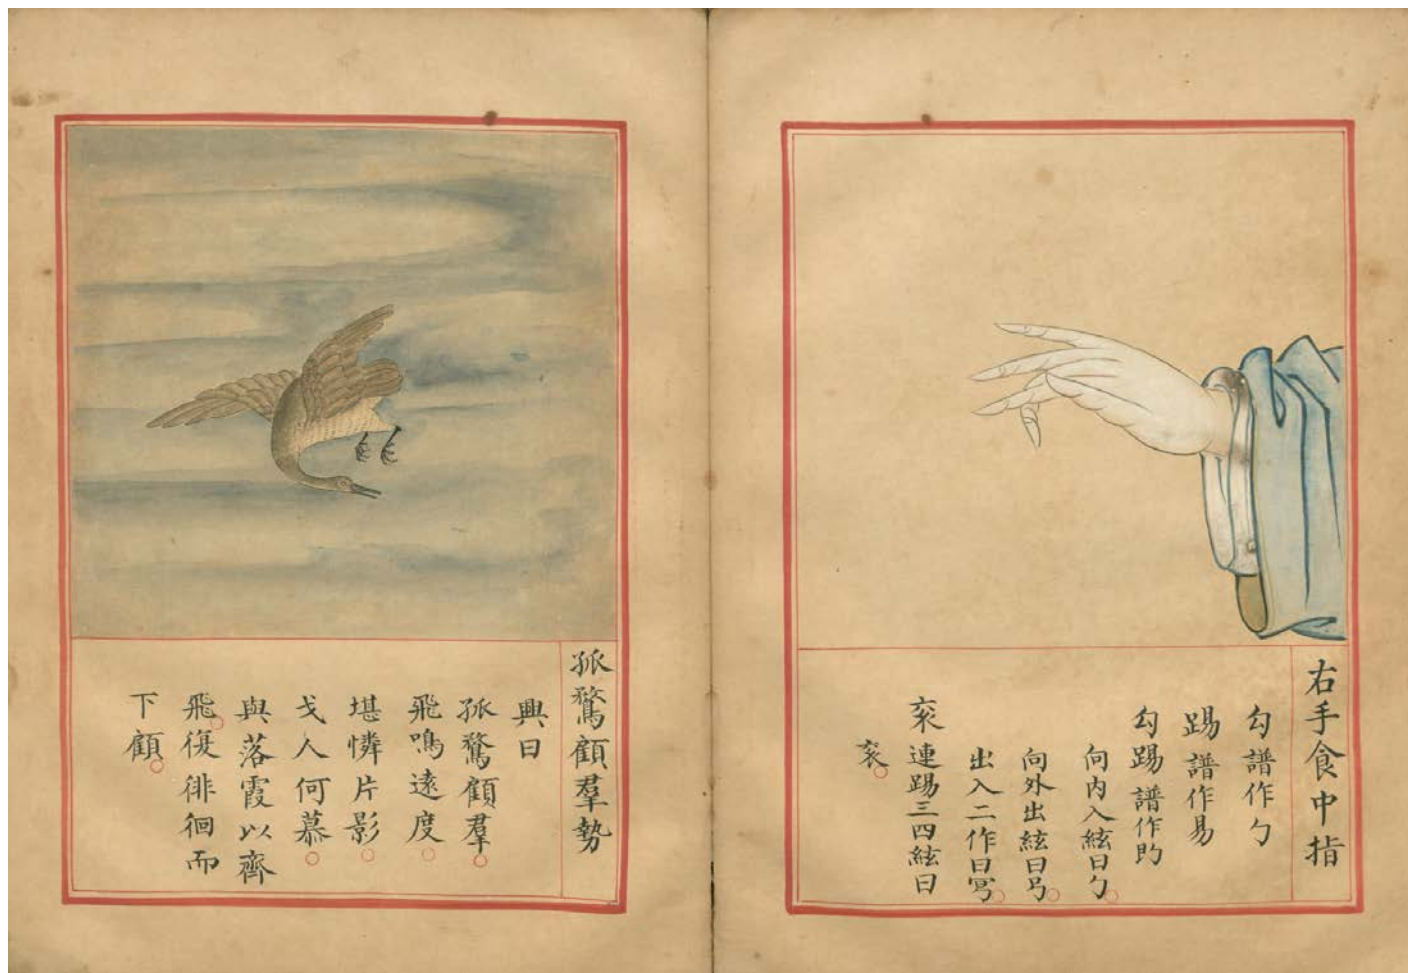 右手食中指
勾譜作勹
踢譜作易
勾踢譜作畃
向內入絃曰勹
向外出絃曰𠃌
出入二作曰
衮連踢三四絃曰
衮
孤鶩顧羣勢
興曰
孤鶩顧羣
飛鳴遠度
堪憐片影
戈人何慕
與落霞以齊
飛復徘徊而
下顧